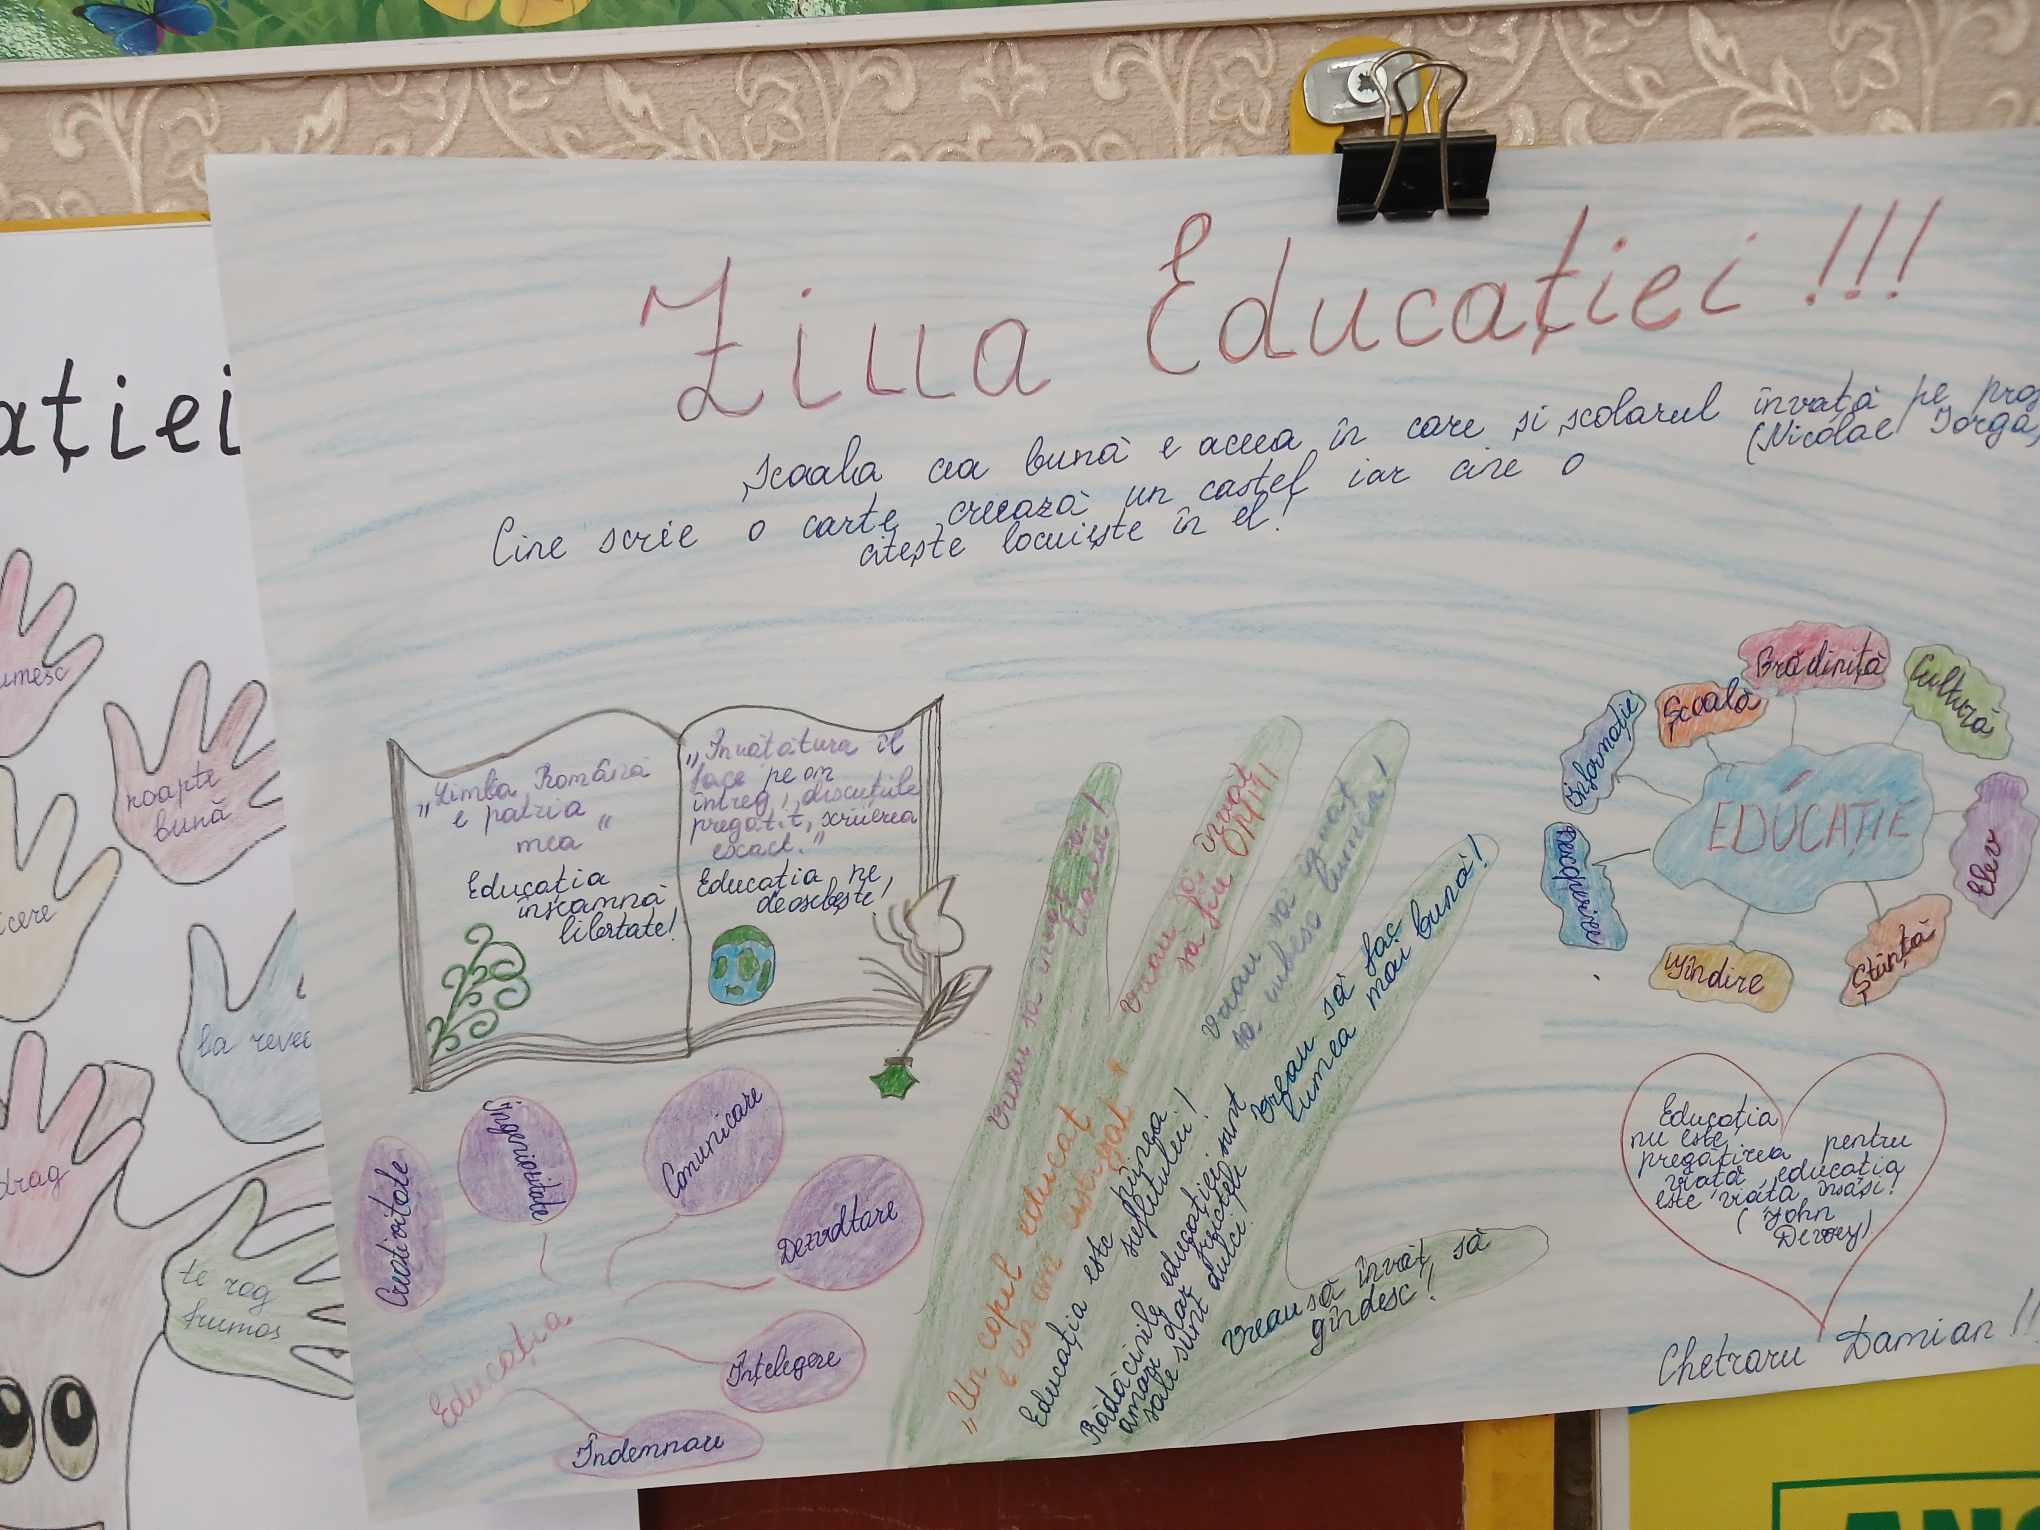 Ziua Educației !!!
Școala cea bună e aceea în care și școlarul învață pe
(Nicolae Iorga)
Cine scrie o carte creează un castel iar cine o
citește locuiește în el!
ației
roapte
bună
la
drag
te rog
frumos
„Limba Română
e patria
mea“
Educația
înseamnă
libertate!
„Învățătura îl
face pe om
întreg, discuțiile
pregătit, scrierea
exact.“
Educația ne
deosebește!
Creativitate
ingeniozitate
Comunicare
Dezvoltare
Înțelegere
Îndemnau
Educația
Vreau să învăț să
Vreau să învăț
să fiu OM!
Vreau să
să iubesc lumea!
Vreau să fac
lumea mai bună!
Vreau să învăț să
gîndesc!
„Un copil educat
e un om cîștigat“
Educația este pîinea
sufletului!
Rădăcinile educației sunt
amare dar fructele
sale sunt dulci!
Informație
Școală
Grădiniță
Cultură
Elev
Știință
Gîndire
EDUCAȚIE
Educația
nu este pentru
pregătirea
viață, educația
este viața însăși!
(John
Dewey)
Chetraru Damian !!